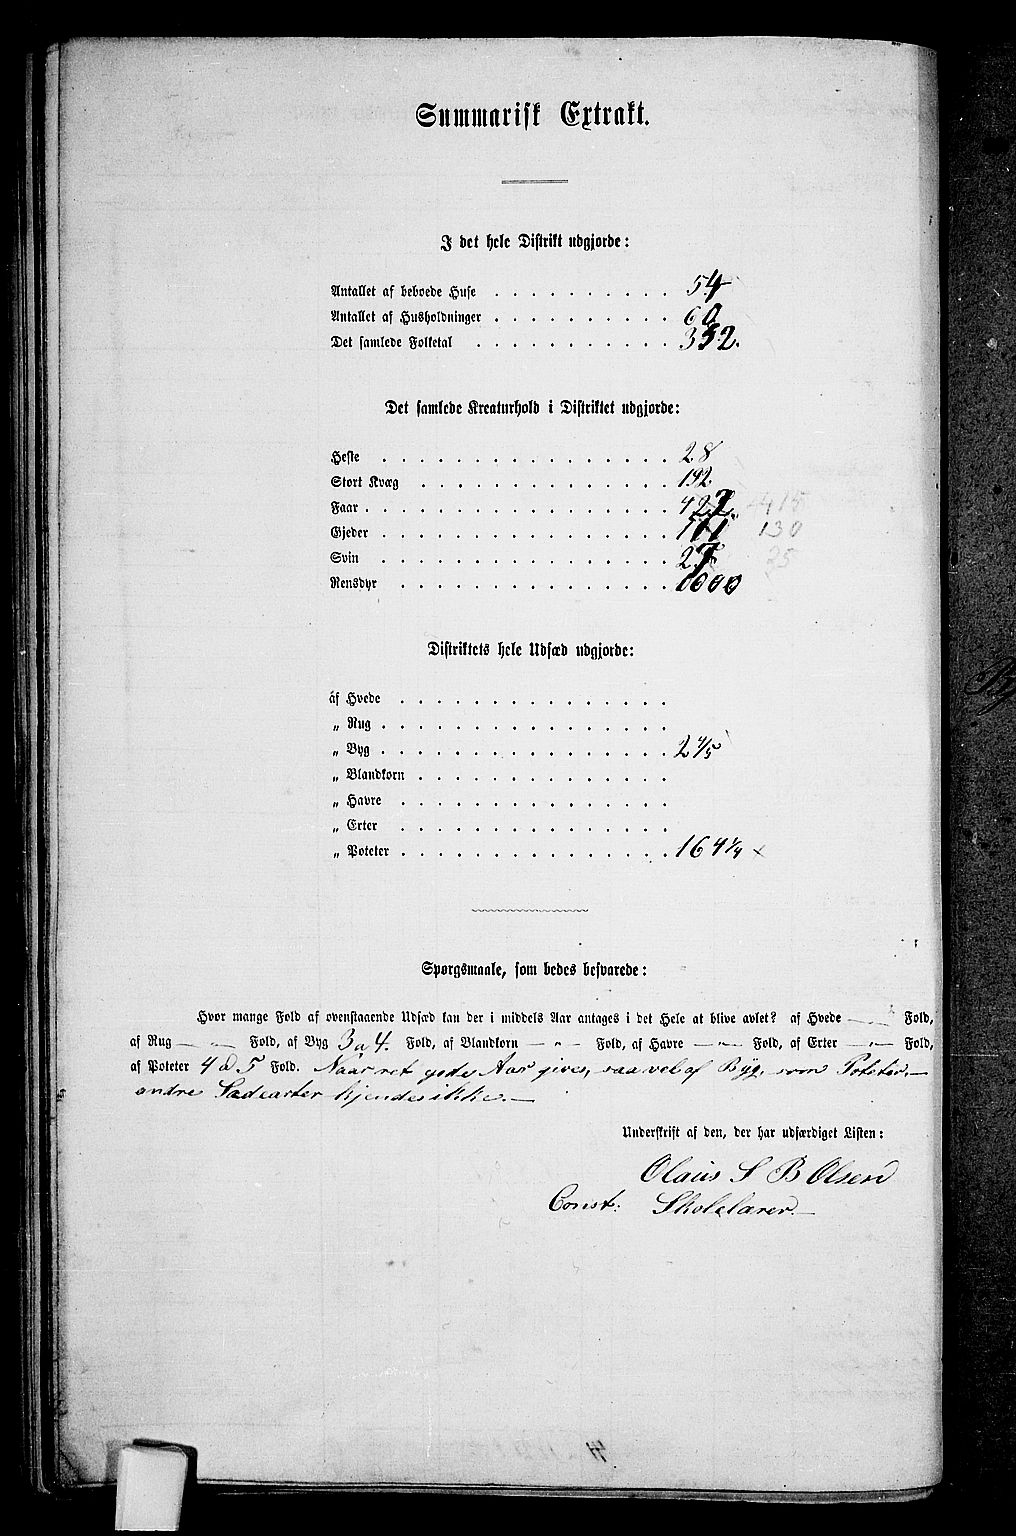 Summarisk Extrakt.
I det hele Distrikt udgjorde:
Antallet af beboede Huse . . . . . . . . . . 54
Antallet af Husholdninger . . . . . . . . . . 60
Det samlede Folketal . . . . . . . . . . . 352.
Det samlede Kreaturhold i Distriktet udgjorde:
Heste . . . . . . . . . . . . . . . . 28
Stort Kvæg . . . . . . . . . . . . . . 192.
Faar . . . . . . . . . . . . . . . . . 422. 415
Gjeder . . . . . . . . . . . . . . . . 130
Svin . . . . . . . . . . . . . . . . 27 25
Rensdyr . . . . . . . . . . . . . . .
Distriktets hele Udsæd udgjorde:
af Hvede . . . . . . . . . . . . . . .
„ Rug . . . . . . . . . . . . . . . .
„ Byg . . . . . . . . . . . . . . . . 2 4/5
„ Blandkorn . . . . . . . . . . . . . .
„ Havre . . . . . . . . . . . . . . .
„ Erter . . . . . . . . . . . . . . .
„ Poteter . . . . . . . . . . . . . . . 164 1/4 x
Spørgsmaale, som bedes besvarede:
Hvor mange Fold af ovenstaaende Udsæd kan der i middels Aar antages i det Hele at blive avlet? af Hvede — „ — Fold,
af Rug — „ — Fold, af Byg 3 a 4. Fold, af Blandkorn — „ — Fold, af Havre — „ — Fold, af Erter — „ — Fold,
af Poteter 4 a 5 Fold. Naar ret gode Aar gives, saavel af Byg, som Poteter. —
andre Sædearter kjendes ikke. —
Underskrift af den, der har udfærdiget Listen:
Olaus S B Olsen
Const: Skolelærer. —